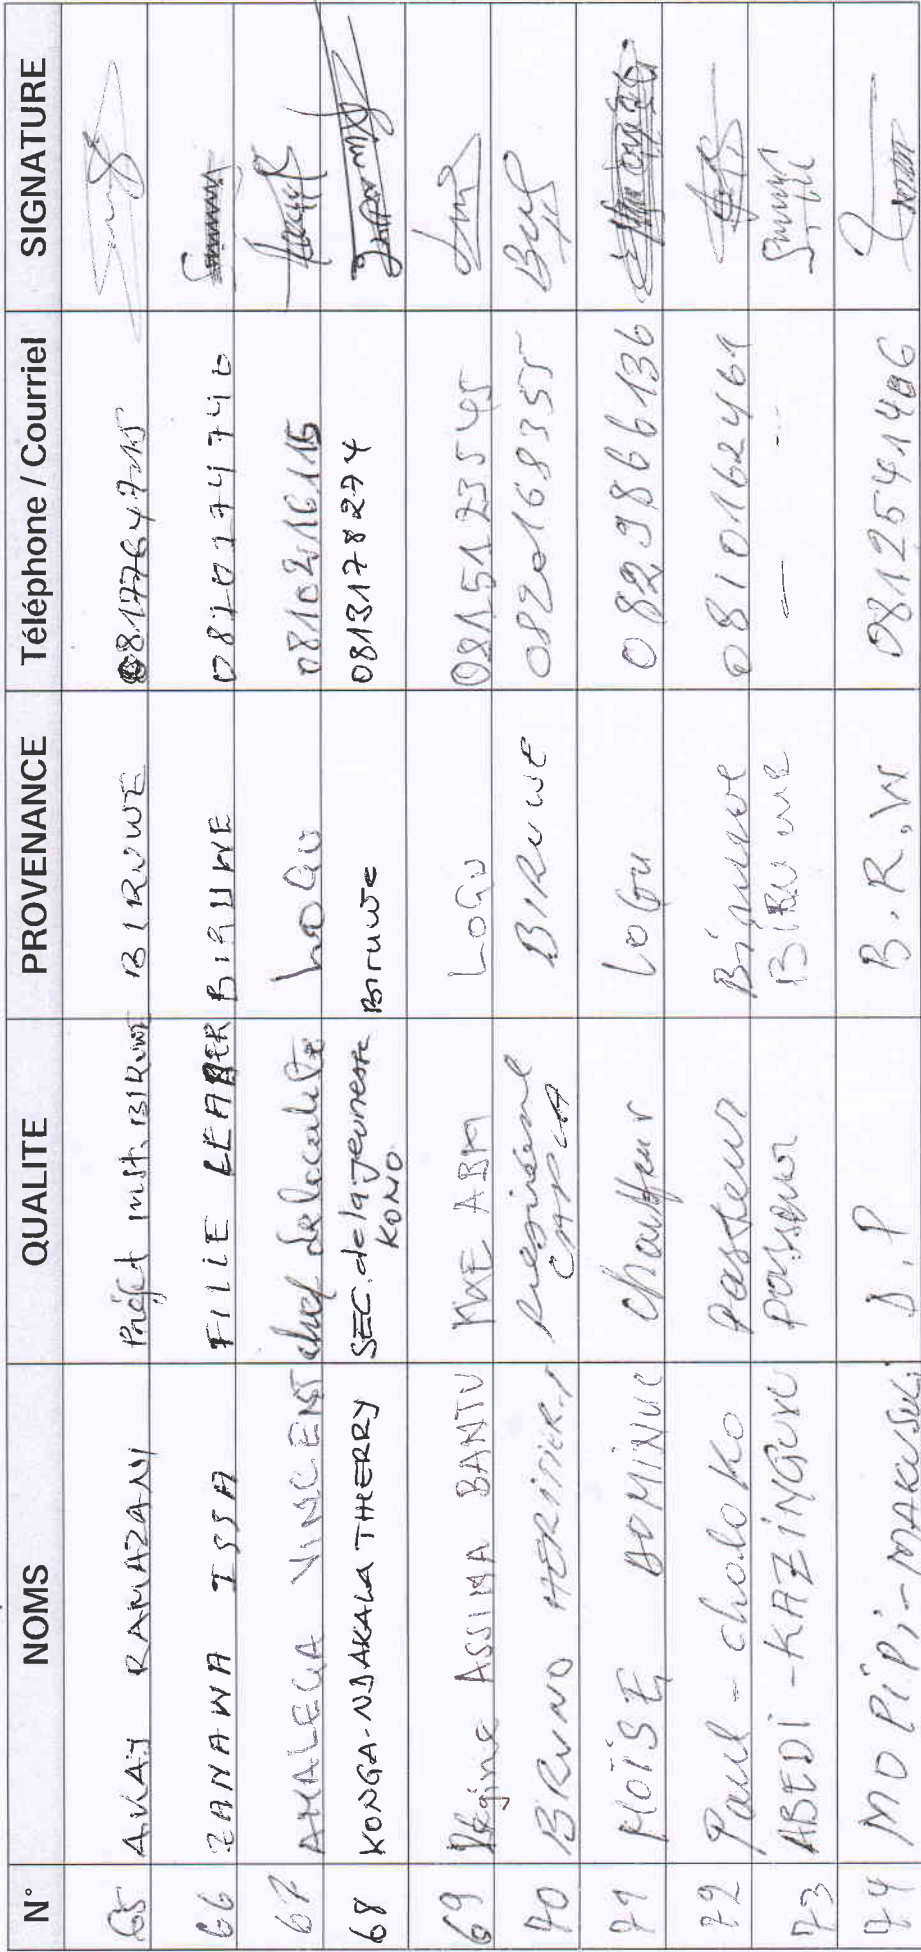 N° NOMS QUALITE PROVENANCE Téléphone / Courriel SIGNATURE
65 AKAY RAMAZANI Préfet inst. BIRUWE BIRUWE
66 ZANAWA ISSA FILLE LEADER BIRUWE
67 AMALEGA VINCENT chef de localité LOGU
68 KONGA-NDAKALA THIERRY SEC. de la jeunesse Biruwe 0813178274
KONO
69 Régine ASSIMA BANTU LOGU 0815123545
70 BRUNO HERITIER président BIRUWE 0820168355
71 MOÏSE DOMINUC chauffeur LOGU 0829866136
72 Paul - chaloko Pasteur Biruwe 0810162461
73 ABEDI - KAZINGUVU Passeur BIRUWE
74 MOPIPI - MAKUSUDI D.P B.R.W